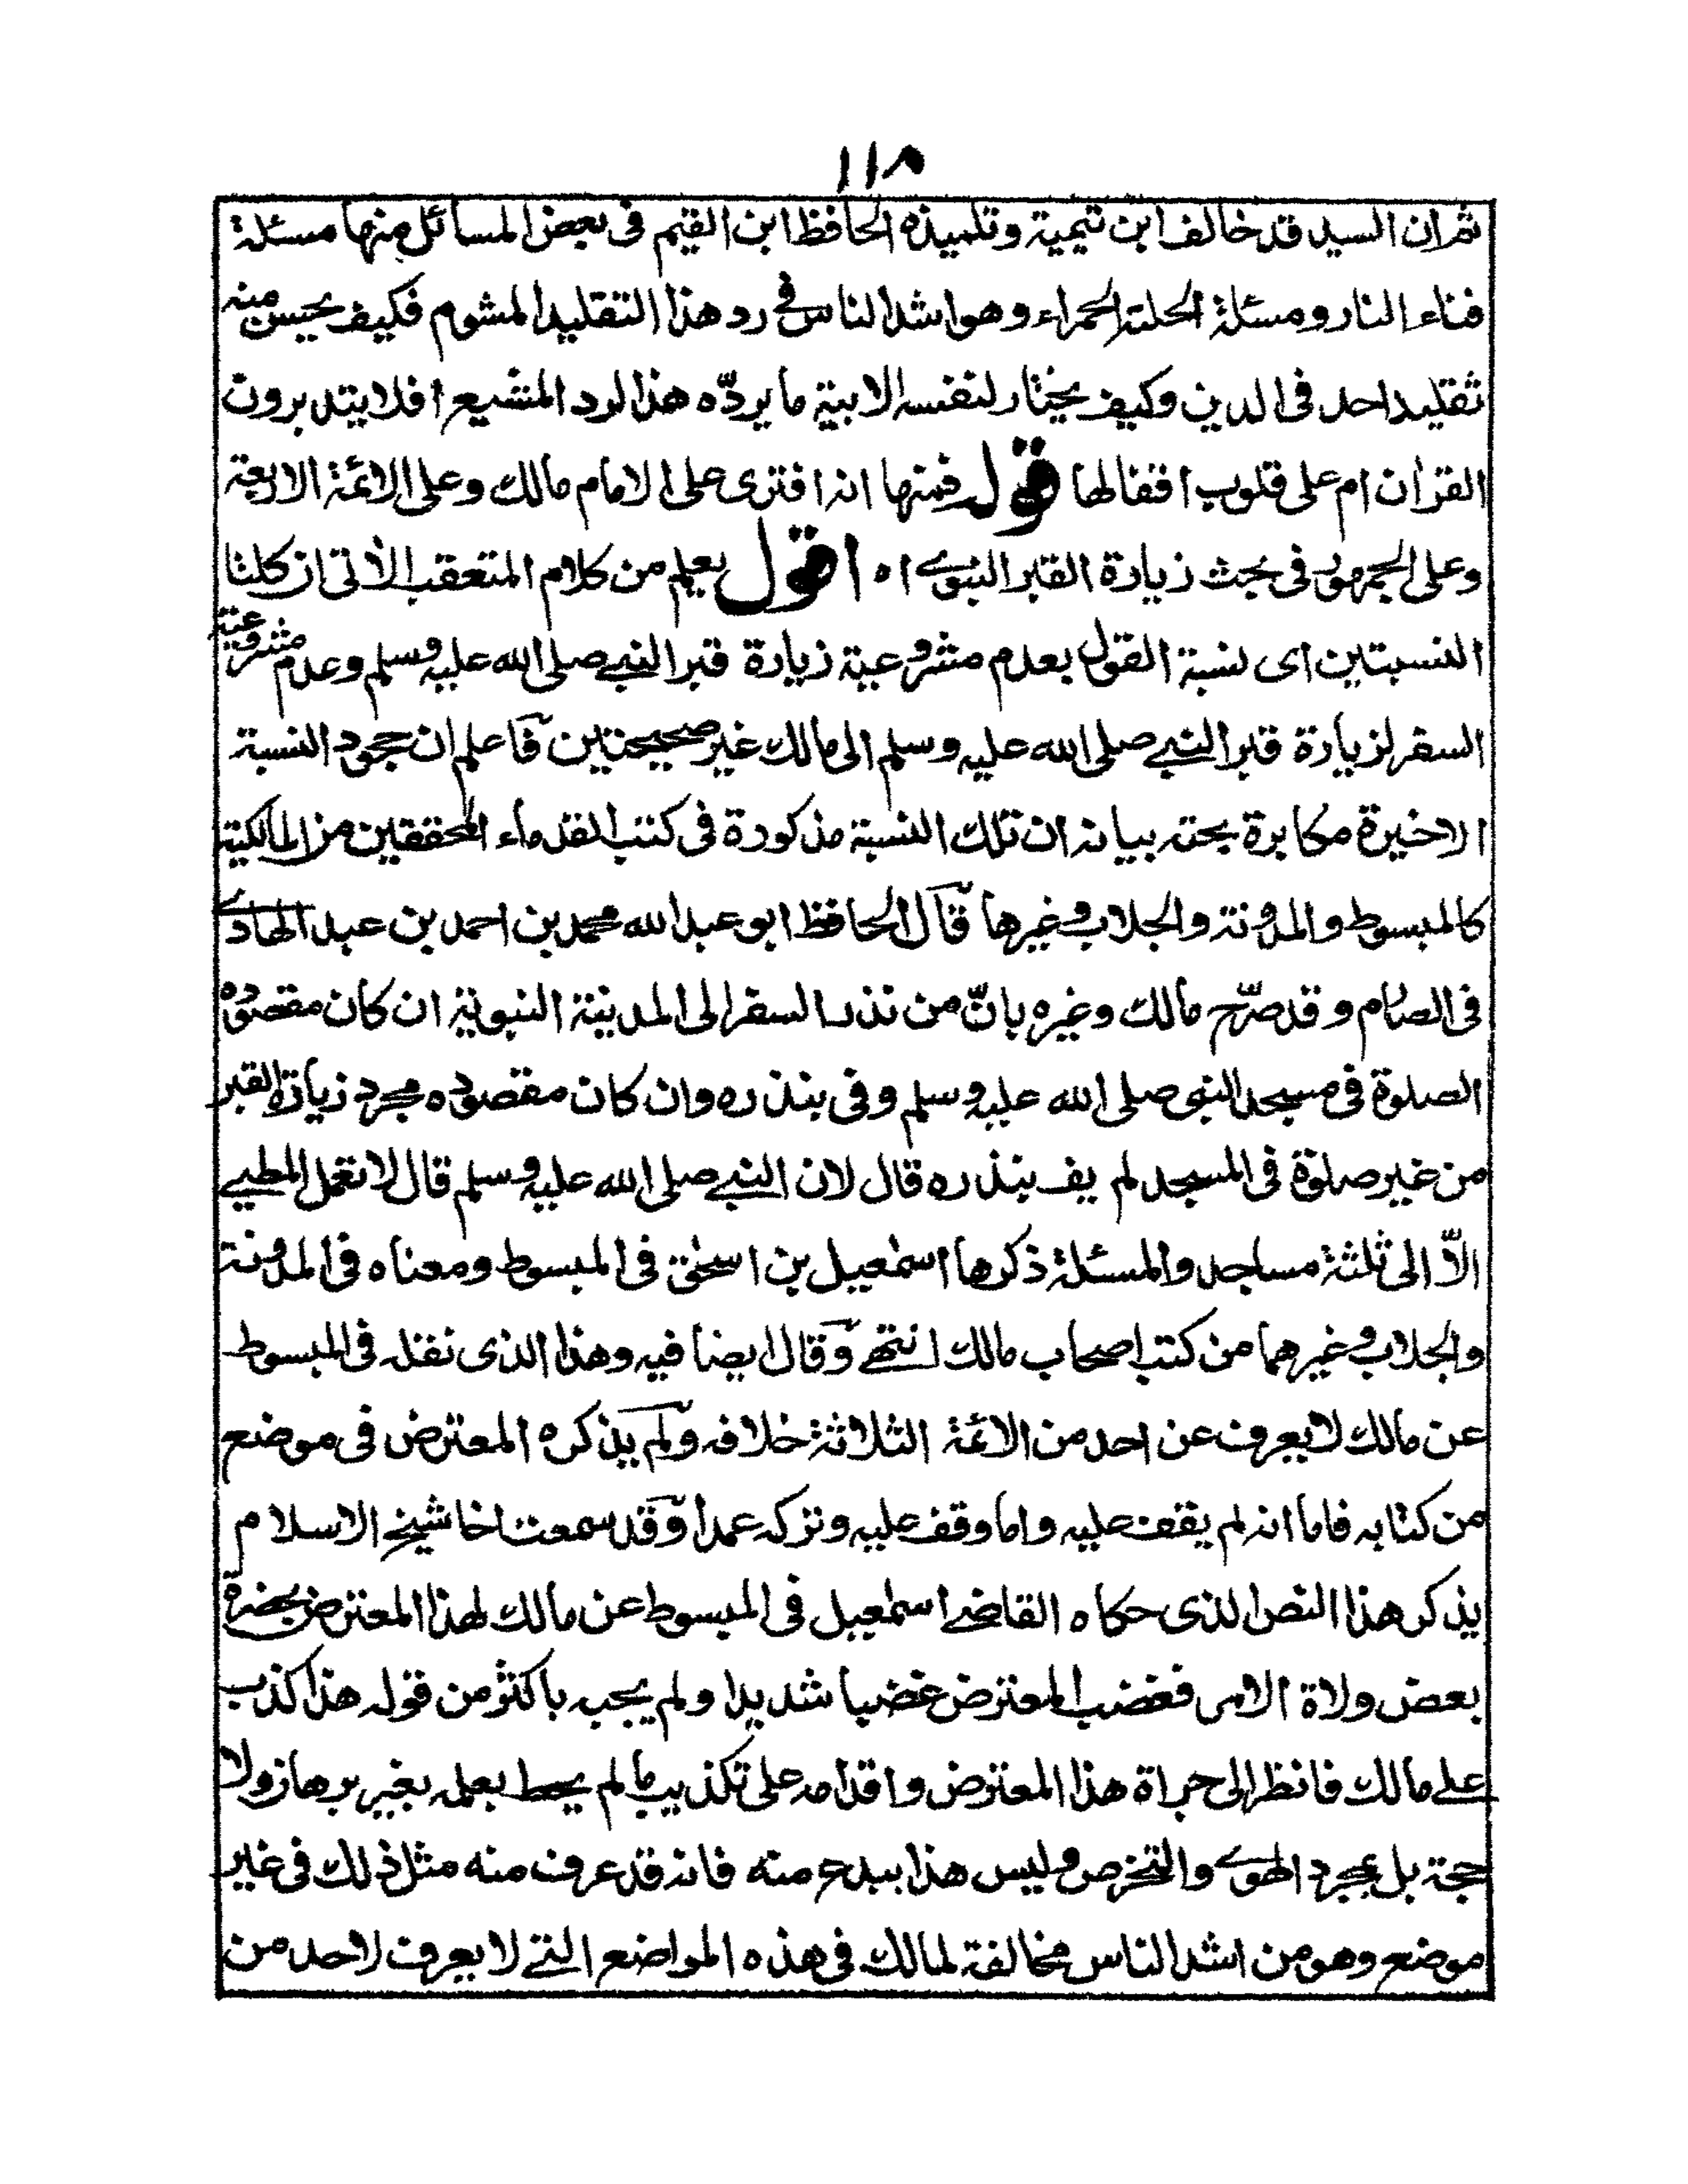 ١١٨
ثم ان السيد قد خالف ابن تيمية وتلميذه الحافظ ابن القيم فى بعض المسائل منها مسئلة
فناء النار ومسئلة الحلة الحمراء وهو اشد الناس فى رد هذا التقليد المشوم فكيف يحسن منه
تقليد احد فى الدين وكيف يختار لنفسه الابية ما يردّه هذا الرد المشيع افلا يتدبرون
القران ام على قلوب اقفالها قوله فمنها انه افترى على الامام مالك وعلى الائمة الاربعة
وعلى الجمهور فى بحث زيارة القبر النبوى اه اقول يعلم من كلام المتعقب الأتى ان كلتا
النسبتين اى نسبة القول بعدم مشروعية زيارة قبر النبى صلى الله عليه وسلم وعدم مشروعية
السفر لزيارة قبر النبى صلى الله عليه وسلم الى مالك غير صحيحتين فاعلم ان جحود النسبة
الاخيرة مكابرة بحتة بيانه ان تلك النسبة مذكورة فى كتب القدماء المحققين من المالكية
كالمبسوط والمدونة والجلاب وغيرها قال الحافظ ابو عبد الله محمد بن احمد بن عبد الهادى
فى الصارم وقد صرّح مالك وغيره بانّ من نذر السفر الى المدينة النبوية ان كان مقصوده
الصلوة فى مسجد النبى صلى الله عليه وسلم وفى بنذره وان كان مقصوده مجرد زيارة القبر
من غير صلوة فى المسجد لم يف بنذره قال لان النبى صلى الله عليه وسلم قال لا تعمل المطى
الاّ الى ثلثة مساجد والمسئلة ذكرها اسمعيل بن اسحق فى المبسوط ومعناه فى المدونة
والجلاب وغيرهما من كتب اصحاب مالك انتهى وقال ايضا فيه وهذا الذى نقله فى المبسوط
عن مالك لا يعرف عن احد من الائمة الثلاثة خلافه ولم يذكره المعترض فى موضع
من كتابه فاما انه لم يقف عليه واما وقف عليه وتركه عمدا وقد سمعت اخا شيخ الاسلام
يذكر هذا النص الذى حكاه القاضى اسمعيل فى المبسوط عن مالك لهذا المعترض بحضرة
بعض ولاة الامر فغضب المعترض غضبا شديدا ولم يجبه باكثر من قوله هذا كذب
على مالك فانظر الى جراة هذا المعترض واقدامه على تكذيب ما لم يحط بعلمه بغير برهان ولا
حجة بل بمجرد الهوى والتخرص وليس هذا ببدع منه فانه قد عرف منه مثل ذلك فى غير
موضع وهو من اشد الناس مخالفة لمالك فى هذه المواضع التى لا يعرف لاحد من